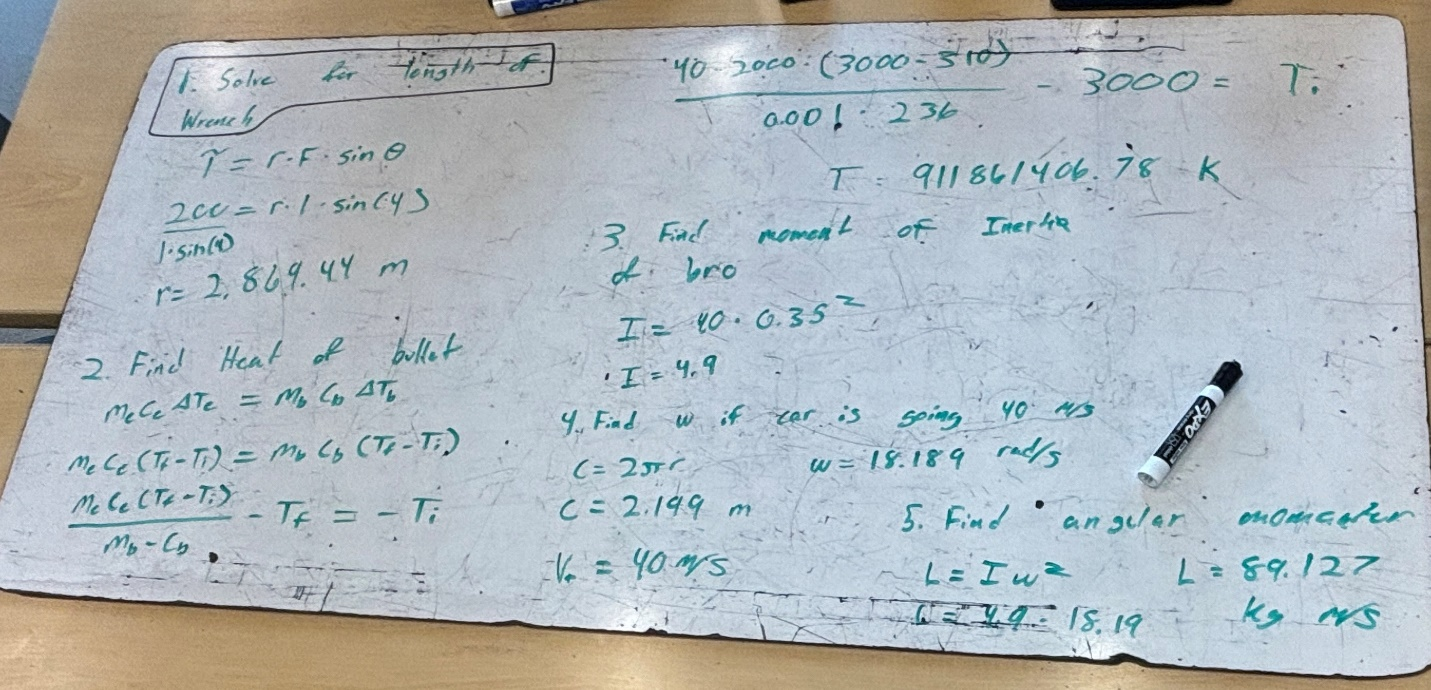 1. Solve for length of
Wrench
τ = r·F·sinθ
200 = r·1·sin(4)
1·sin(4)
r = 2,869.44 m
2. Find Heat of bullet
mcCcΔTc = mbCbΔTb
mcCc(Tf-Ti) = mbCb(Tf-Ti)
mcCc(Tf-Ti)
mb-Cb
- Tf = - Ti
40·2000·(3000-310)
0.001·236
- 3000 = Ti
T = 911861406.78 K
3. Find moment of Inertia
of bro
I = 40·0.35²
I = 4.9
4. Find w if car is going 40 m/s
C = 2πr
w = 18.189 rad/s
C = 2.199 m
V = 40 m/s
5. Find angular
L = Iw²
L = 4.9·18.19
L = 89.127
kg m/s
EXPO